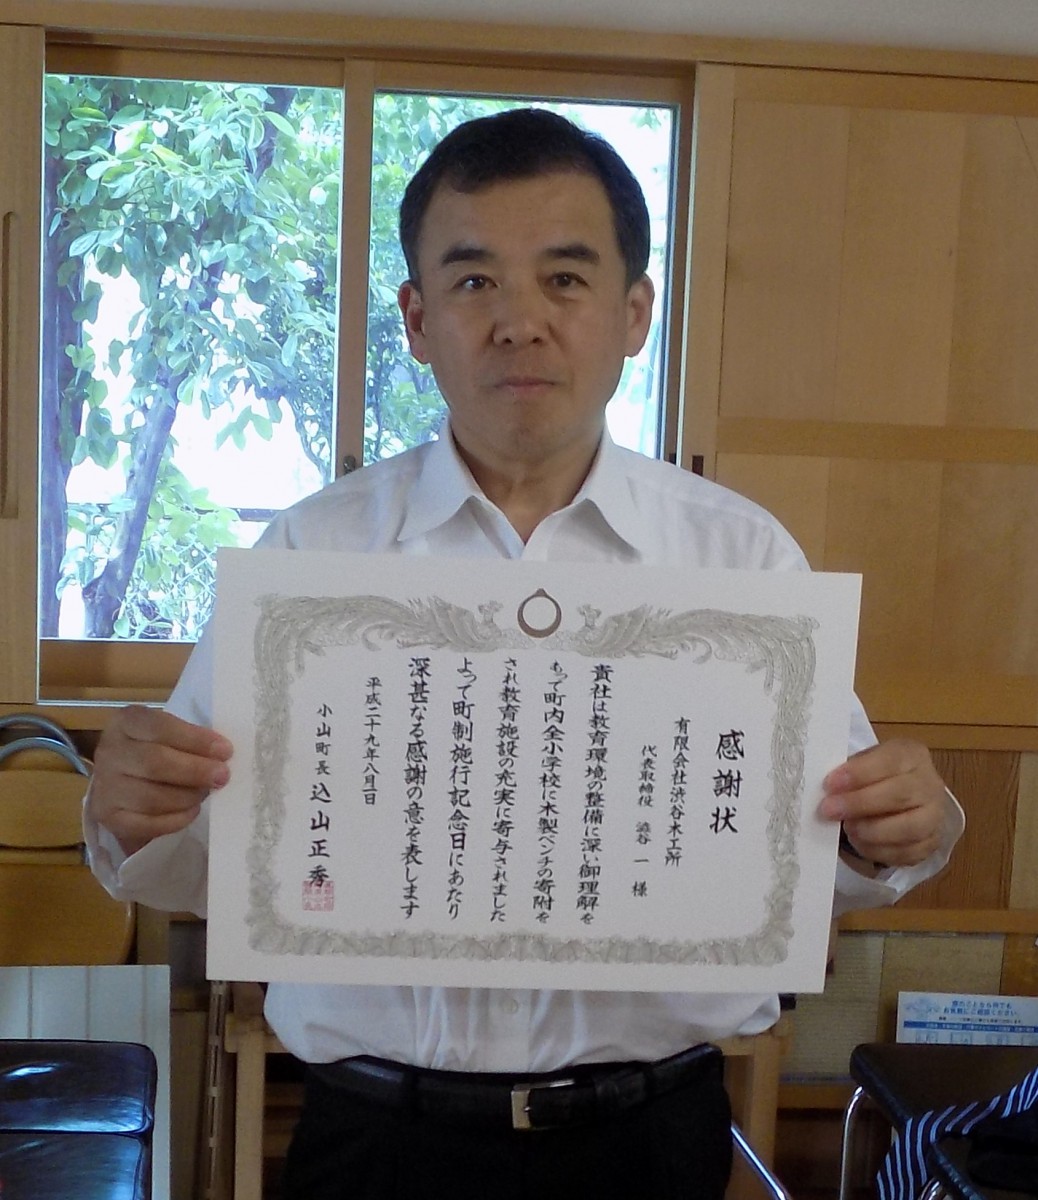 感謝状
有限会社渋谷木工所
代表取締役 澁谷 一 様
貴社は教育環境の整備に深い御理解を
もって町内全小学校に木製ベンチの寄附を
され教育施設の充実に寄与されました
よって町制施行記念日にあたり
深甚なる感謝の意を表します
平成二十九年八月一日
小山町長 込山正秀
お気軽にご相談ください